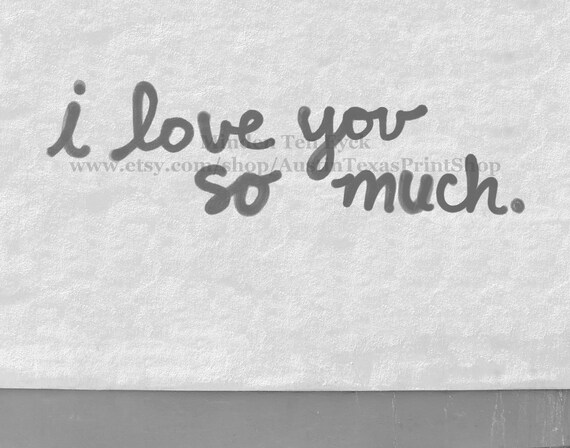 i love you
Minden Ten Eyck
www.etsy.com/shop/AustinTexasPrintShop
so much.